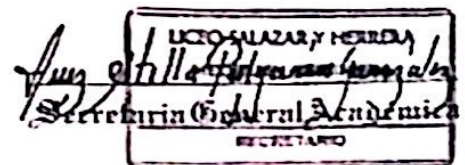 LICEO SALAZAR Y HERRERA
Luz Stella
Secretaria General Academica
SECRETARIO